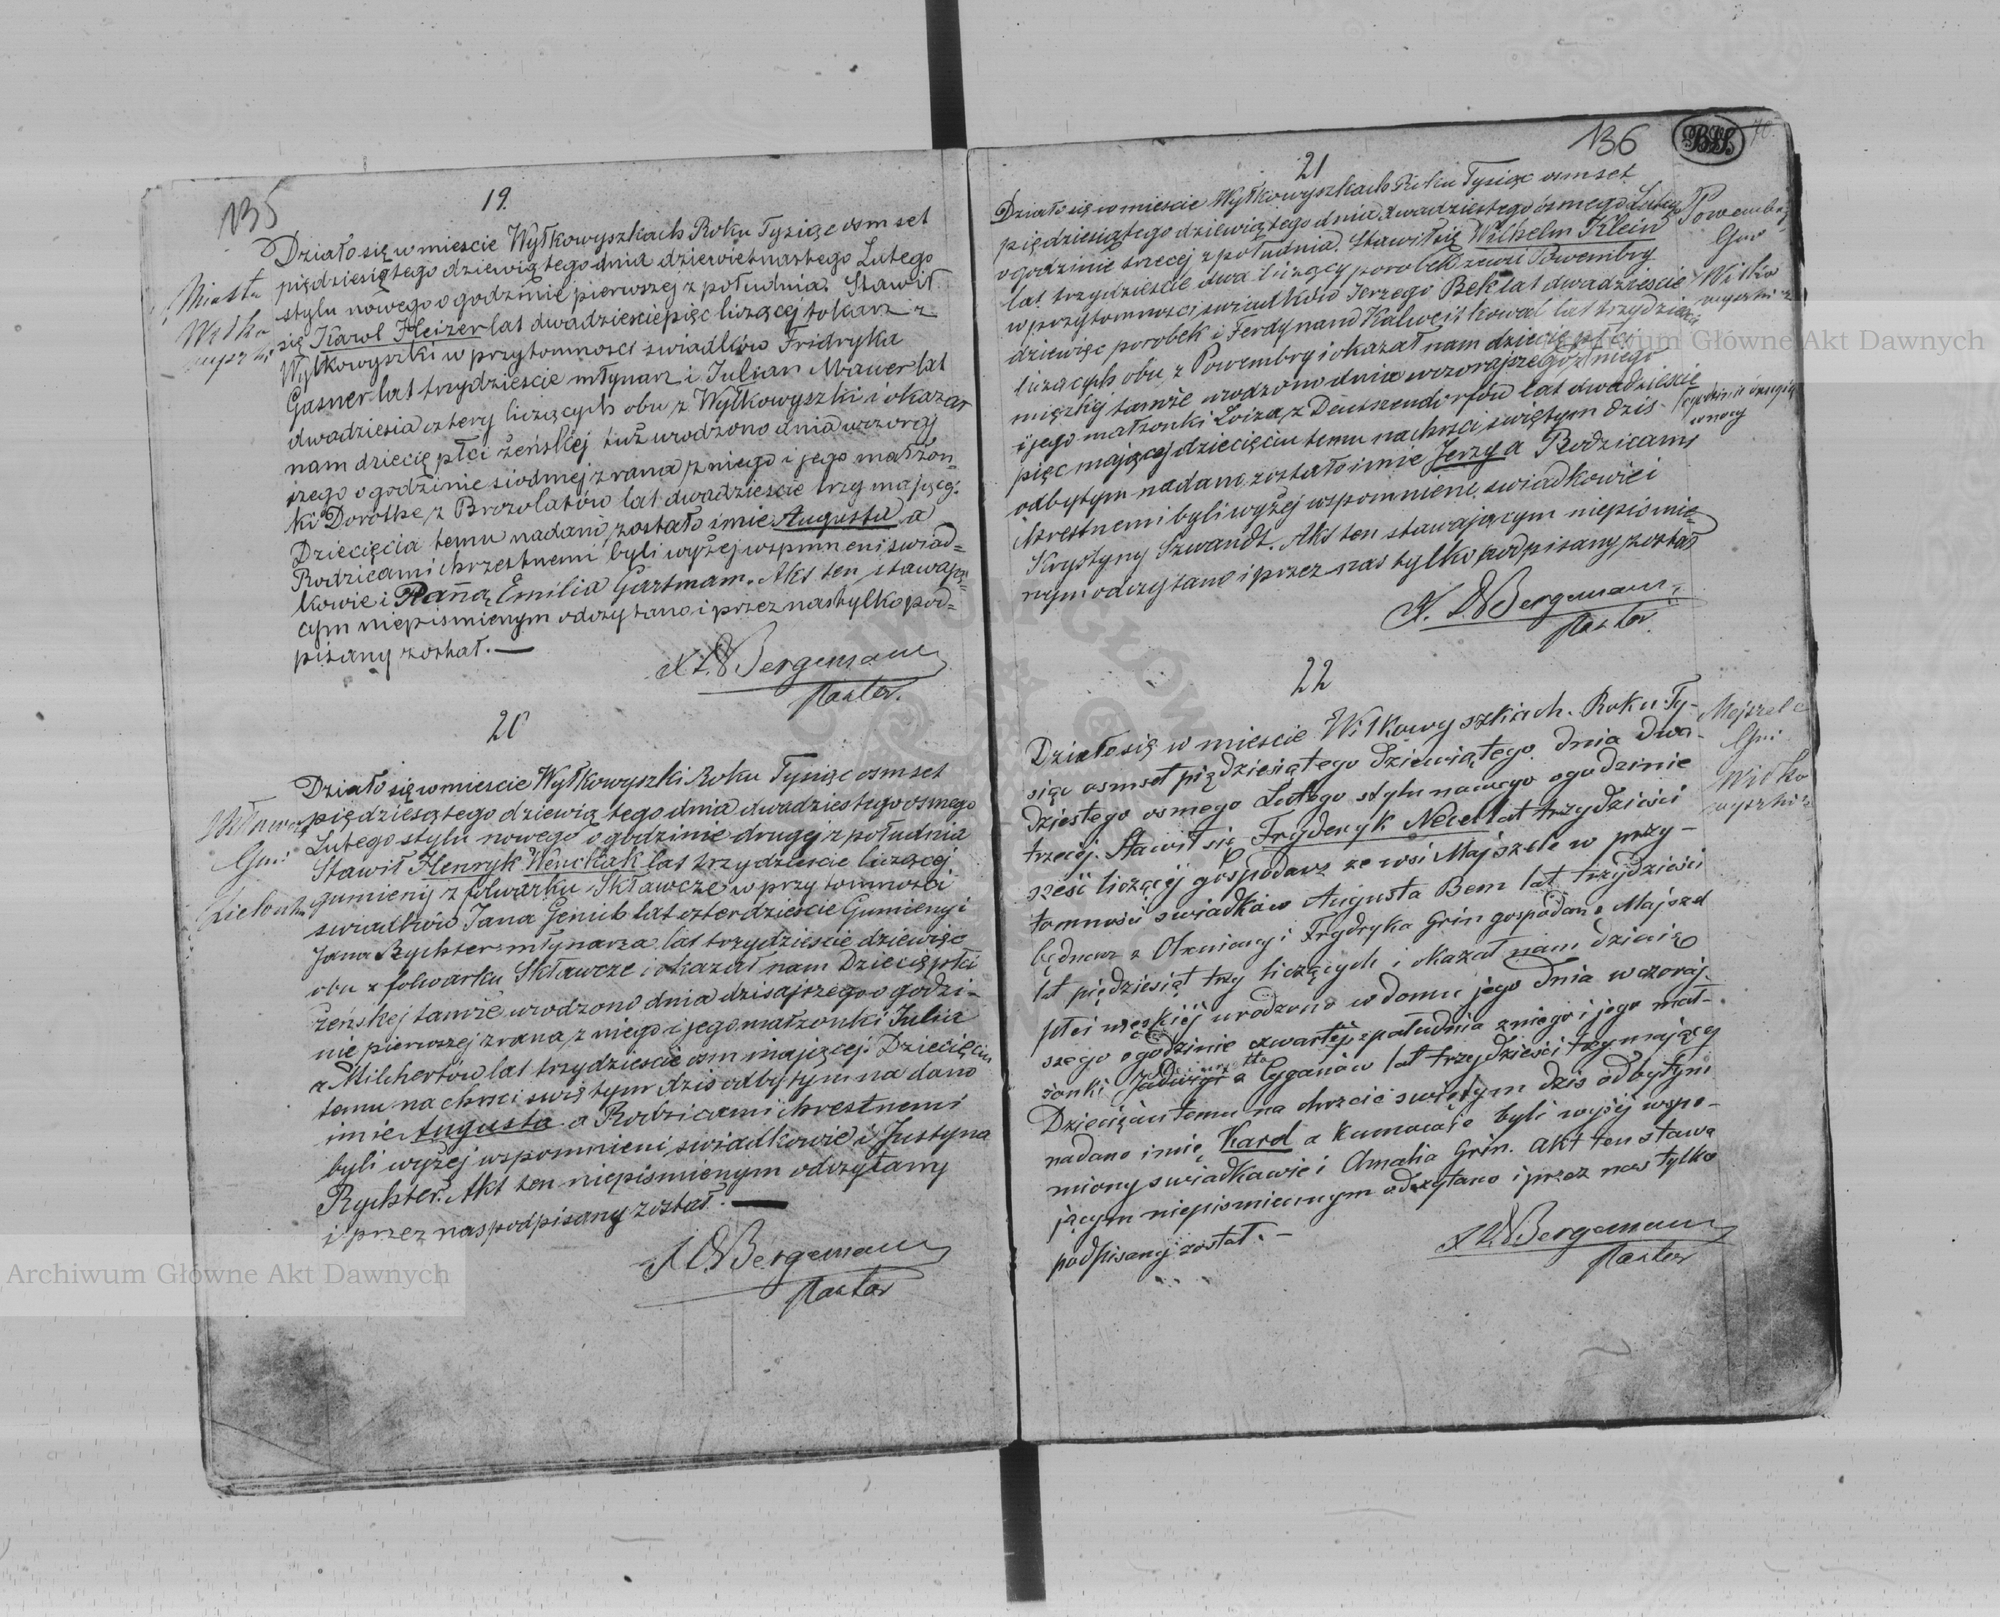 135
19.
Miasta
Wyłko
wyszki
Działo się w miescie Wyłkowyszkach Roku Tysiąc osmset
pięдziesiątego dziewiątego dnia dziewietnastego Lutego
stylu nowego o godzinie pierwszej z południa. Stawił
się Karol Heizer lat dwadziesciepięc liczącej tokarz z
Wyłkowyszki w przytomnosci swiadków Fridryka
Gasner lat trzydziescie młynarz i Julian Mawer lat
dwadziesia cztery liczących obu z Wyłkowyszki i okazał
nam dziecię płci żeńskiej tuż urodzono dnia wczoraj
szego o godzinie siodmej z rana z niego i jego małżon-
ki Dorothe z Brozolatów lat dwadziescie trzy mającej.
Dziecięcia temu nadano zostało imie Augusta a
Rodzicami chrzestnemi byli wyżej wspmneni swiad=
kowie i Panną Emilia Gartmam. Akt ten stawają=
cym niepismienym odczytano i przez nas tylko pod=
pisany został. —
X L. W Bergemann
Pastor.
20
Gmi
Działo się w miescie Wyłkowyszki Roku Tysiąc osmset
piędziesątego dziewiątego dnia dwadziestego osmego
Lutego stylu nowego o godzinie drugej z południa
Stawił Henryk Wenckak lat trzydziescie liczącej
gumieny z folwarku Skławcze w przytomnosci
swiadków Jana Genieb lat czterdziescie Gumieny i
Jana Rychter młynarza lat trzydziescie dziewięc
obu z folwarku Skławcze i okazał nam Dziecię płci
żeńskej tamże urodzono dnia dzisajszego o godzi-
nie pierwszej z rana z niego i jego małżonki Julia
a Milchertów lat trzydziescie osm mającej. Dziecięciu
temu na chrzci swiętym dzis odbytym nadano
imie Augusta a Rodzicami chrestnemi
byli wyżej wspomnieni swiadkowie i Justyna
Rychter. Akt ten niepismienym odczytany
i przez nas podpisany został. —
X L. W Bergemann
Pastor
136
21
Powembry
Gmi
Wiłko
wyszki
Działo się w miescie Wyłkowyszkach Roku Tysiąc osmset
pięдziesiątego dziewiątego dnia dwadziestego osmego Lutego
o godzinie trzecej z południa. Stawił się Wilhelm Klein
lat trzydziescie dwa liczący porobek zewsi Powembry
w przytomnosci swiadków Jerzego Bek lat dwadziescie
dziewięc porobek i Ferdynand Kalweit kowal lat trzydziesci
liczących obu z Powembry i okazał nam dziecię płci
mięzkiej tamże urodzono dnia wczorajszego z niego
i jego małżonki Loiza z Deutszendorfów lat dwadziescie
pięc mającej dziecięciu temu na chrzci swiętym dzis
odbytym nadano zostało imie Jerzy a Rodzicami
chrestnemi byli wyżej wspomnieni swiadkowie i
Krystyny Szwandt. Akt ten stawającym niepismie=
nym odczytano i przez nas tylko podpisany został
X. L. W Bergemann
Pastor.
22
Majszele
Gmi:
Wiłko
wyszki
Działo się w miescie Wiłkowyszkiach. Roku Ty-
siąc osmset piędziesiątego Dziewiątego. dnia dwa-
dziestego osmego Lutego stylu nowego o godzinie
trzeciej. Stawił się Fryderyk Necel lat trzydzieści
sześć liczącej gospodarz ze wsi Majszele w przy-
tomność swiadków Augusta Bem lat trzydzieści
będnarz z Olzniany i Frydryka Grin gospodarz Majszel
lat piędziesiąt trzy liczących i okazał nam dziecię
płci męskiej urodzono w domu jego dnia wczoraj-
szego o godzinie czwartej z południa z niego i jego mał-
żonki Jadwigi z Cyganów lat trzydzieści trzy mającej
Dziecięciu temu na chrzcie swiętym dzis odbytym
nadano imię Karol a kumowie byli wyżej wspo-
miony swiadkowie i Amalia Grin. Akt ten stawa
jącym niepismiennym odczytano i przez nas tylko
podpisany został. —
X L. W Bergemann
Pastor
Archiwum Główne Akt Dawnych
Archiwum Główne Akt Dawnych